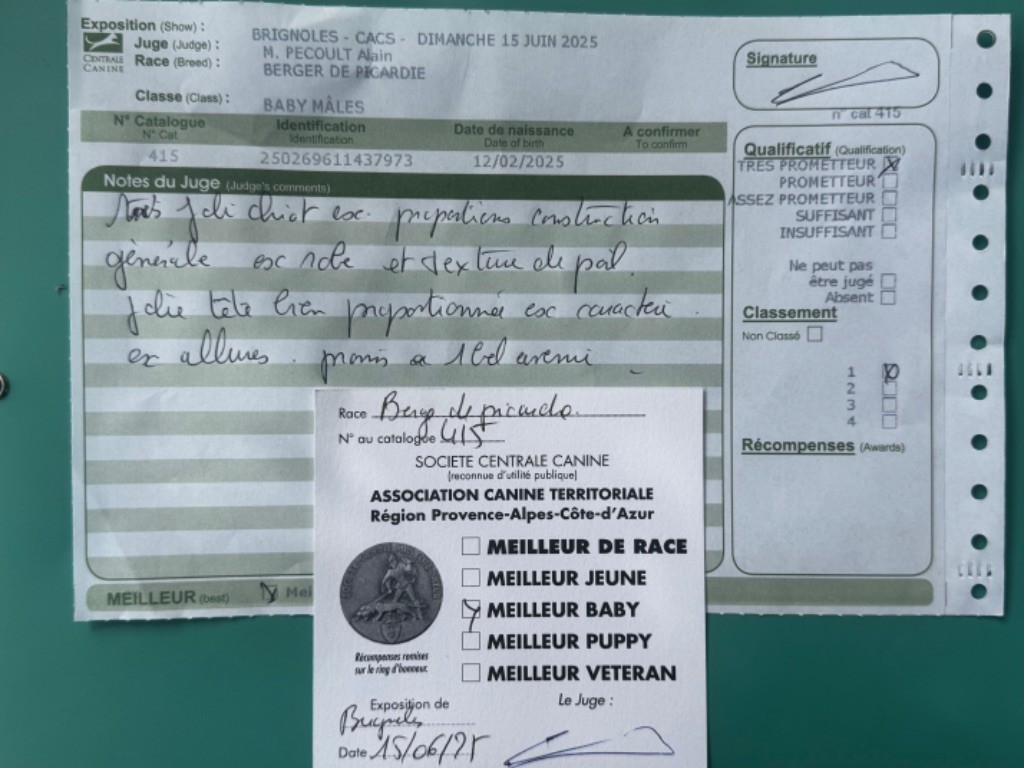 Exposition (Show) : BRIGNOLES - CACS - DIMANCHE 15 JUIN 2025
Juge (Judge) : M. PECOULT Alain
CENTRALE CANINE
Race (Breed) : BERGER DE PICARDIE
Classe (Class) : BABY MÂLES
Signature
n° cat 415
N° Catalogue Identification Date de naissance A confirmer
N° Cat Identification Date of birth To confirm
415 250269611437973 12/02/2025
Notes du Juge (Judge's comments)
Très Joli chiot exc. proportions construction
générale exc robe et texture de poil.
Jolie tête bien proportionnée exc caractère.
ex allures. promis a 1 bel aveni
Qualificatif (Qualification)
TRES PROMETTEUR
PROMETTEUR
ASSEZ PROMETTEUR
SUFFISANT
INSUFFISANT
Ne peut pas
être jugé
Absent
Classement
Non Classé
1
2
3
4
Récompenses (Awards)
MEILLEUR (best) Mei
Race Berg de picardie
N° au catalogue 415
SOCIETE CENTRALE CANINE
(reconnue d'utilité publique)
ASSOCIATION CANINE TERRITORIALE
Région Provence-Alpes-Côte-d'Azur
MEILLEUR DE RACE
MEILLEUR JEUNE
MEILLEUR BABY
MEILLEUR PUPPY
MEILLEUR VETERAN
Récompenses remises
sur le ring d'honneur.
Le Juge :
Exposition de
Brignoles
Date 15/06/25